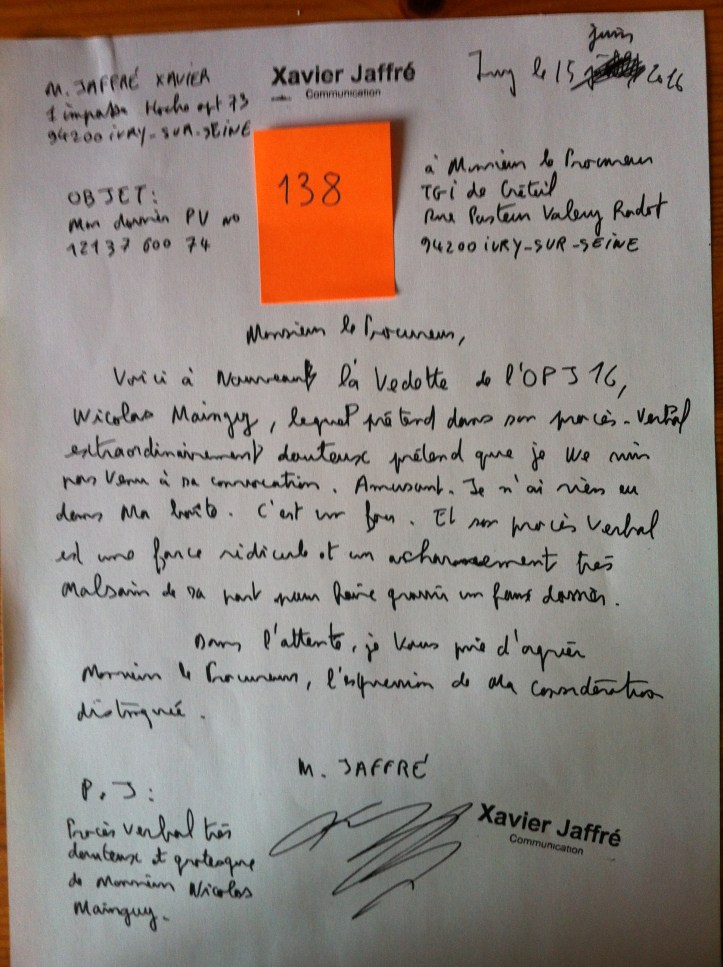 M. JAFFRÉ XAVIER
1 impasse Hoche apt 73
94200 iVRY-SUR-SEiNE
Xavier Jaffré
Communication
juin
Ivry le 15 2016
OBJET:
Mon dernier PV no
12137 600 74
138
à Monsieur le Procureur
TGi de Créteil
Rue Pasteur Valery Radot
94200 iVRY-SUR-SEiNE
Monsieur le Procureur,
Voici à Nouveau la Vedette de l'OPJ 16,
Nicolas Mainguy, lequel prétend dans son procès-verbal
extraordinairement douteux prélend que je Ne suis
pas Venu à sa convocation. Amusant. Je n'ai rien eu
dans Ma boîte. C'est un fou. Et son procès Verbal
est une farce ridicule et un acharnement très
Malsain de sa part pour faire grossir un faux dossier.
Dans l'attente, je Vous prie d'agréer
Monsieur le Procureur, l'expression de Ma considération
distinguée.
M. JAFFRÉ
P.J:
Procès Verbal très
douteux et grotesque
de Monsieur Nicolas
Mainguy.
Xavier Jaffré
Communication